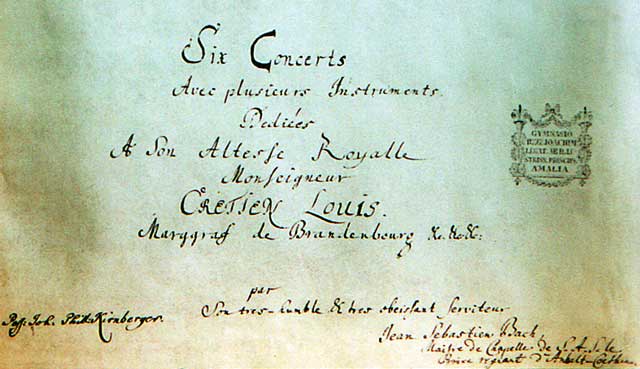 Six Concerts
Avec plusieurs Instruments.
Dediées
A Son Altesse Royalle
Monseigneur
CRETIEN LOUIS.
Marggraf de Brandenbourg &c.&c.&c:
par
Son tres-humble & tres obeissant serviteur
Jean Sebastien Bach,
Maitre de Chapelle de S.A.S. le
Prince regnant d'Anhalt-Coethen.
Poss: Joh. Phil. Kirnberger.
GYMNASIO
JOACHIM
LEGAT.
PRINCIPIS
AMALIA